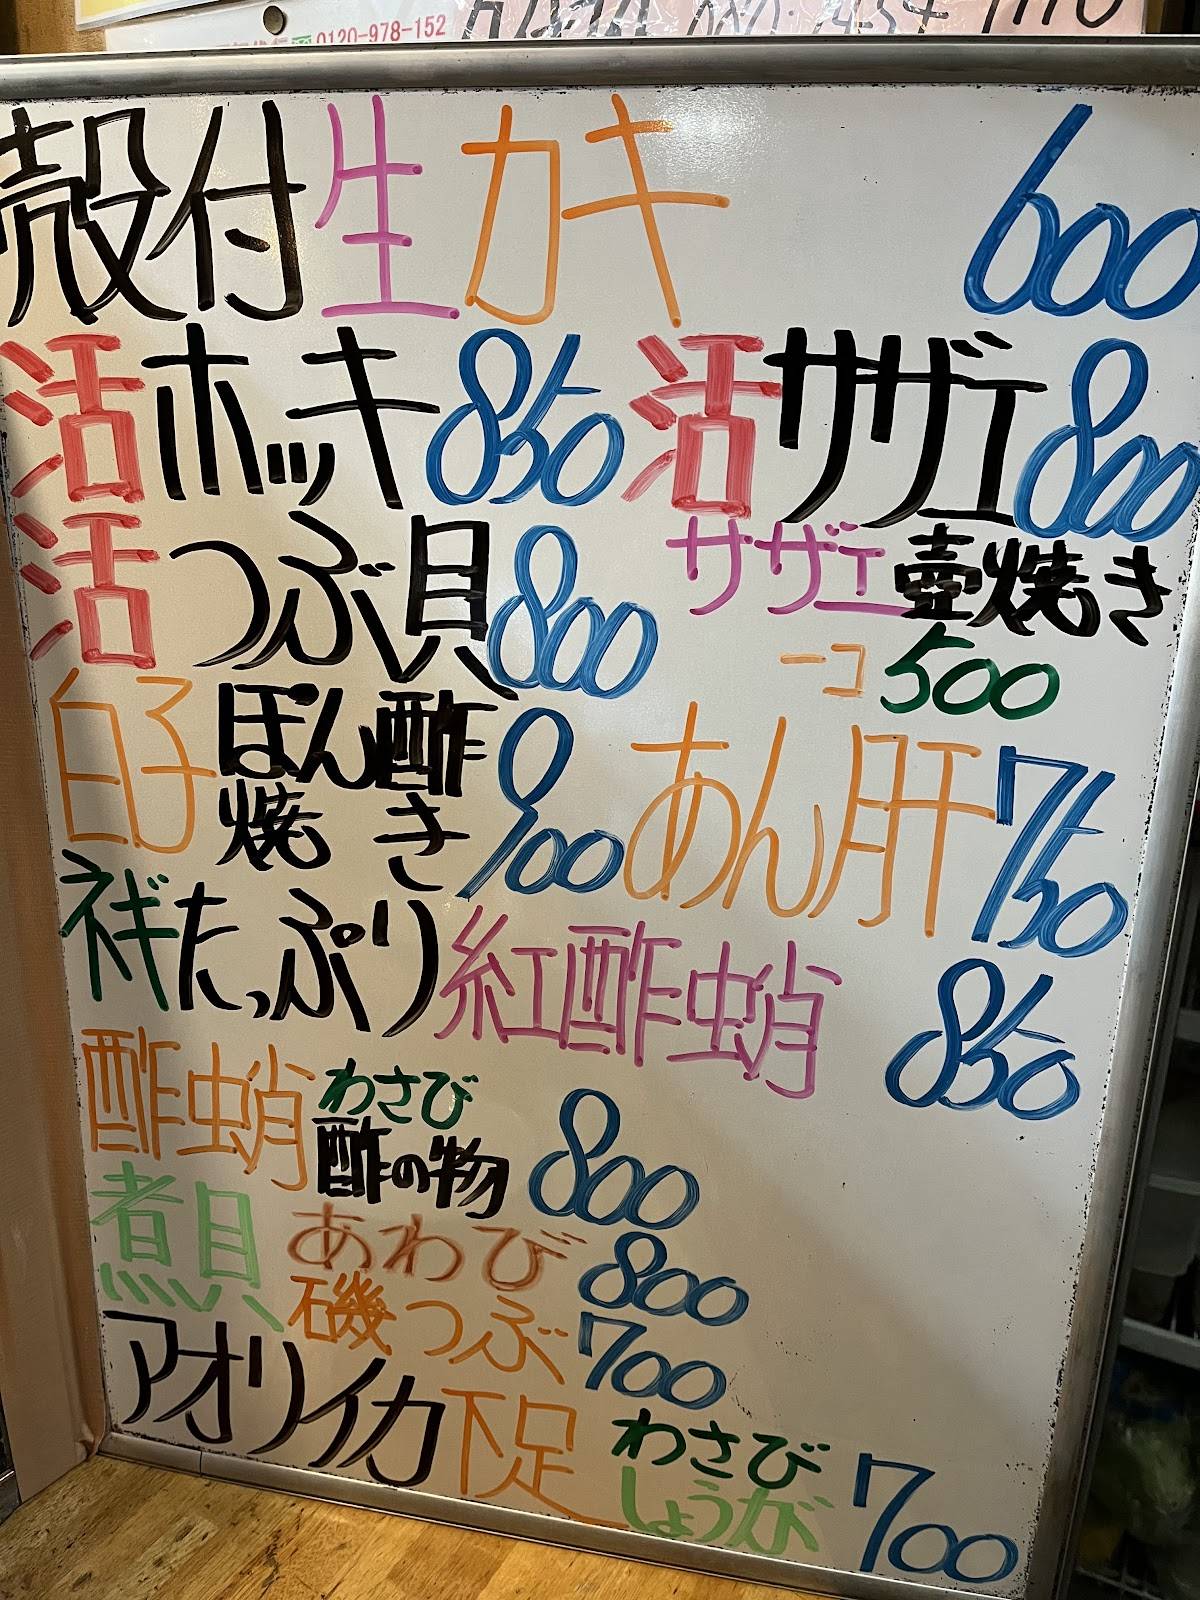 0120-978-152
殻付生カキ 600
活ホッキ 850 活サザエ 800
活つぶ貝 800 サザエ壺焼き
一コ 500
白子ぽん酢焼き 900 あん肝 750
ネギたっぷり紅酢蛸 850
酢蛸わさび酢の物 800
煮貝 あわび 800
磯つぶ 700
アオリイカ下足 わさび しょうが 700